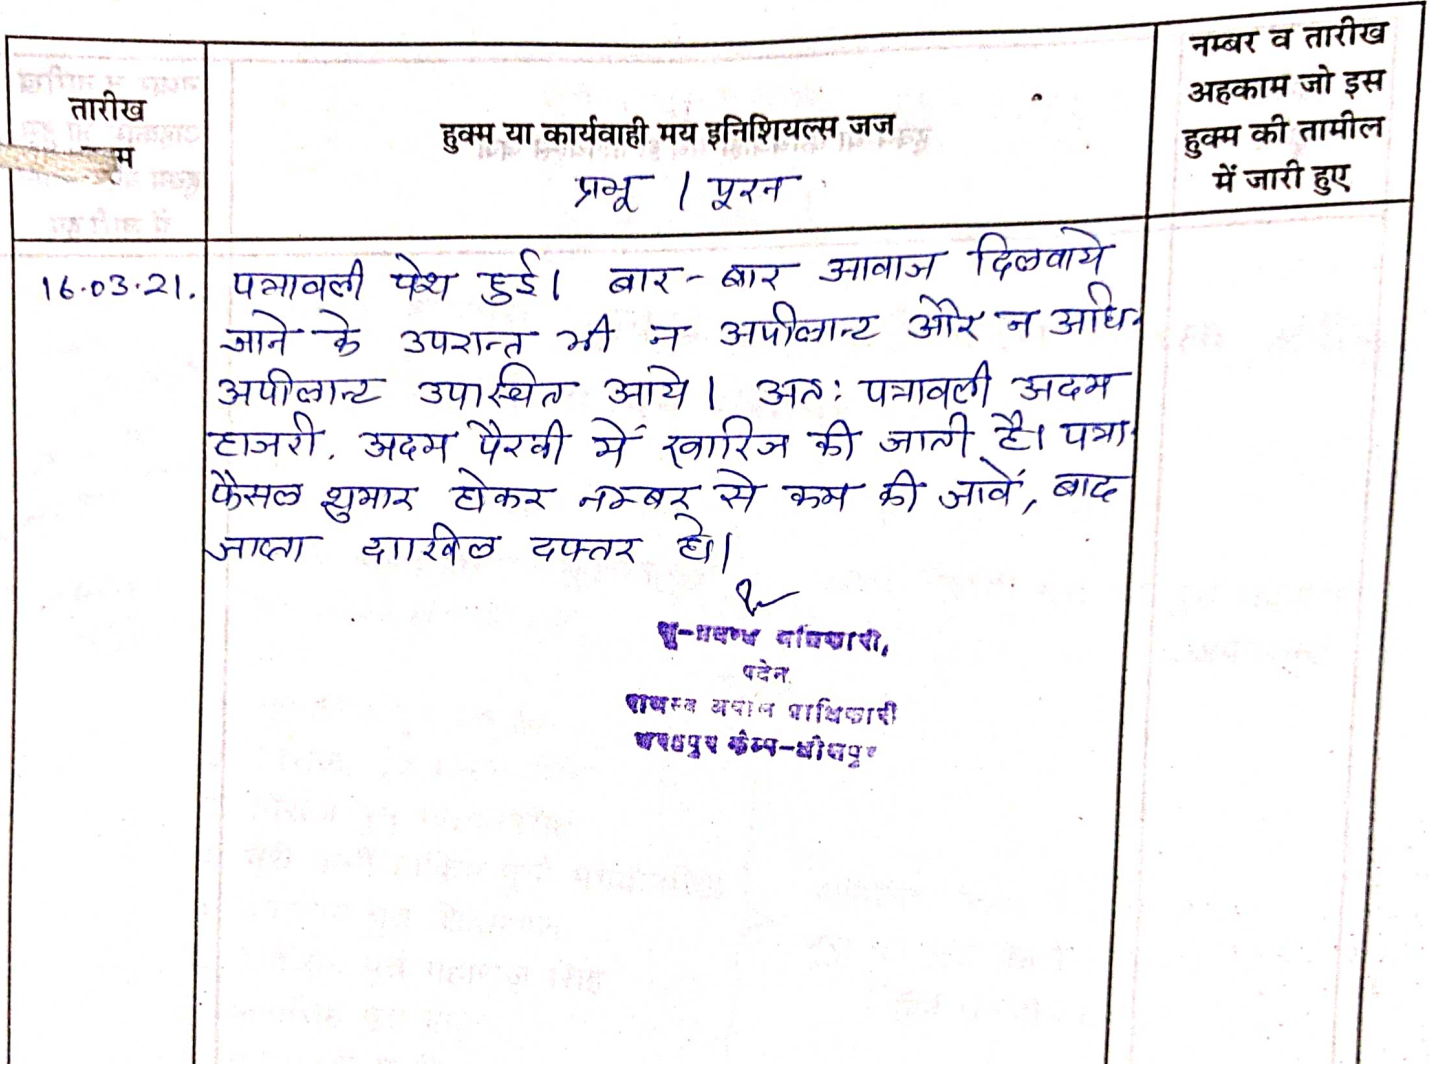 तारीख
हुक्म या कार्यवाही मय इनिशियल्स जज
नम्बर व तारीख
अहकाम जो इस
हुक्म की तामील
में जारी हुए
प्रभू / पूरन
16.03.21.
पत्रावली पेश हुई। बार-बार आवाज दिलवाये
जाने के उपरान्त भी न अपीलान्ट और न अधि.
अपीलान्ट उपस्थित आये। अतः पत्रावली अदम
हाजरी, अदम पैरवी में खारिज की जाती है। पत्रा.
फैसल शुमार होकर नम्बर से कम की जावें, बाद
जाप्ता दाखिल दफ्तर हो।
भू-प्रबन्ध अधिकारी,
पदेन
राजस्व अपील प्राधिकारी
भरतपुर कैम्प-धौलपुर